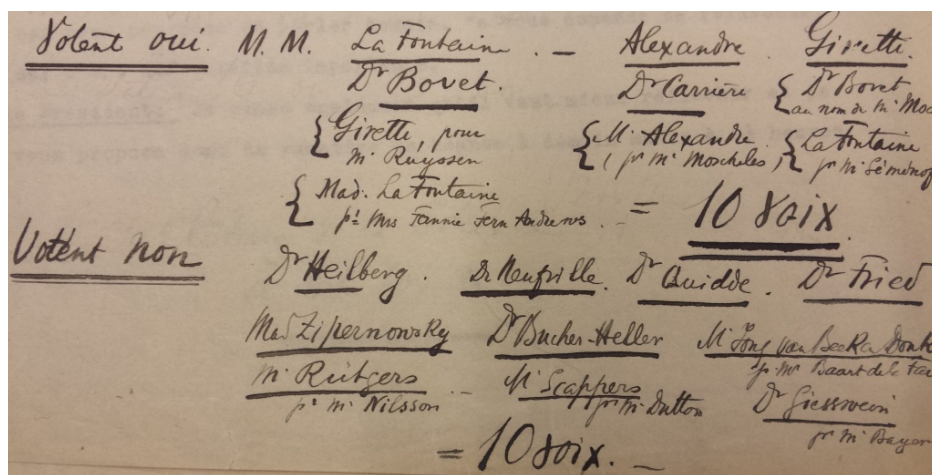 Votent oui. M. M. La Fontaine. — Alexandre. Giretti.
Dr Bovet. Dr Carrière { Dr Bovet
au nom de Mr Moc
{ Giretti, pour { Mr Alexandre { La Fontaine
Mr Ruyssen ( pr Mr Moscheles ) pr Mr Séménof
{ Mad. La Fontaine
pr Mrs Fannie Fern Andrews. — = 10 voix.
Votent non
Dr Heilberg. De Neufville. Dr Quidde. Dr Fried
Mad Zipernowsky Dr Bucher-Heller Mr Jong van Beek en Donk
pr Mr Baart de la Fai
Mr Rütgers — Mr Scappers Dr Giesswein
pr Mr Nilsson pr Mr Dutton pr Mr Bayer
= 10 voix. —